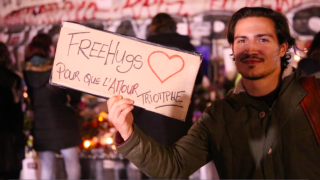 FREEHUGS
POUR QUE L'AMOUR
TRIOMPHE